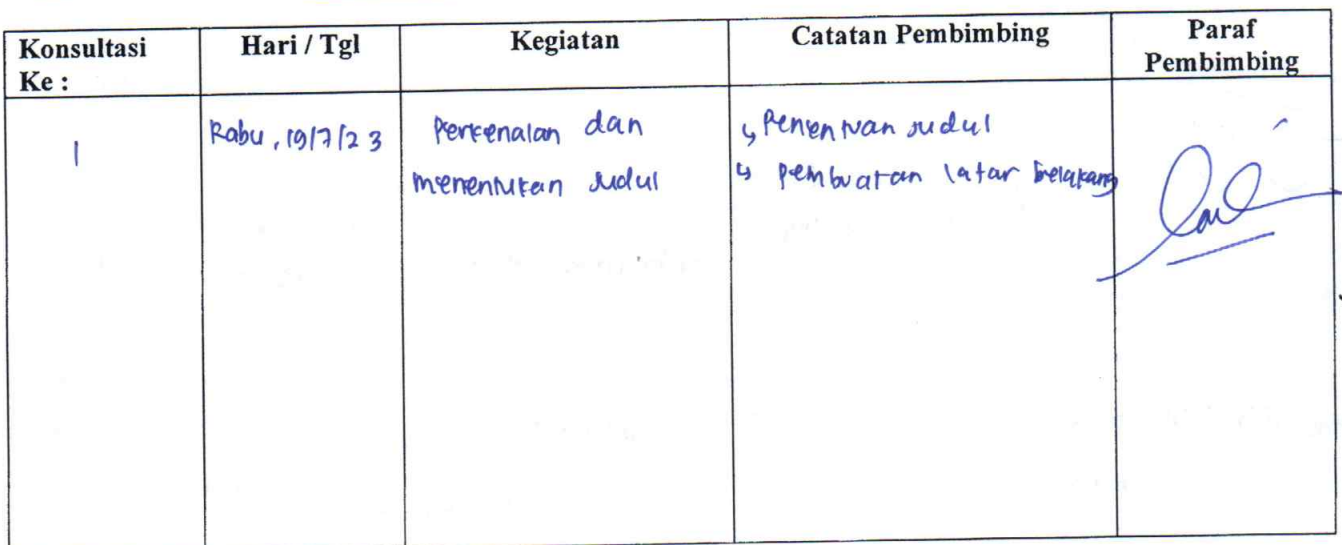 Konsultasi Ke :
Hari / Tgl
Kegiatan
Catatan Pembimbing
Paraf Pembimbing
1
Rabu, 19/7/23
Perkenalan dan
menentukan Judul
↳ Penentuan Judul
↳ pembuatan latar belakang